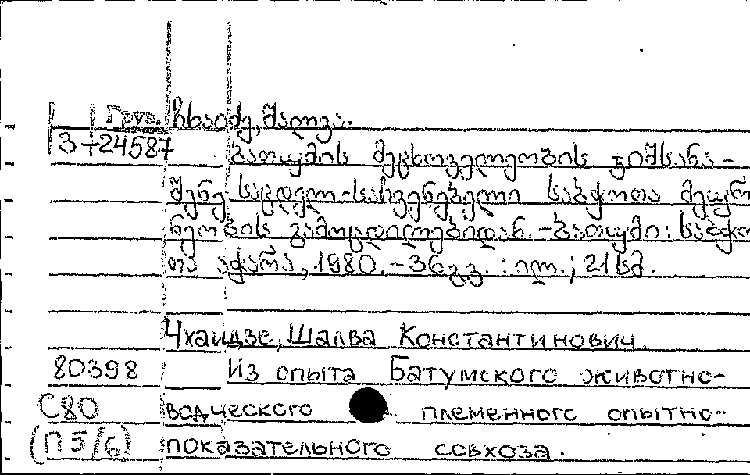 Груз. ჩხაიძე, შალვა.
3-24587
ბათუმის მეცხოველეობის ჯიშსანა-
შენე საცდელ-საჩვენებელი საბჭოთა მეურ
ნეობის გამოცდილებიდან.-ბათუმი: საბჭო
თა აჭარა, 1980.-36გვ. : ილ.; 21სმ.
Чхаидзе, Шалва Константинович.
80398 Из опыта Батумского животно-
С80 водческого племенного опытно-
(П5/6) показательного совхоза.